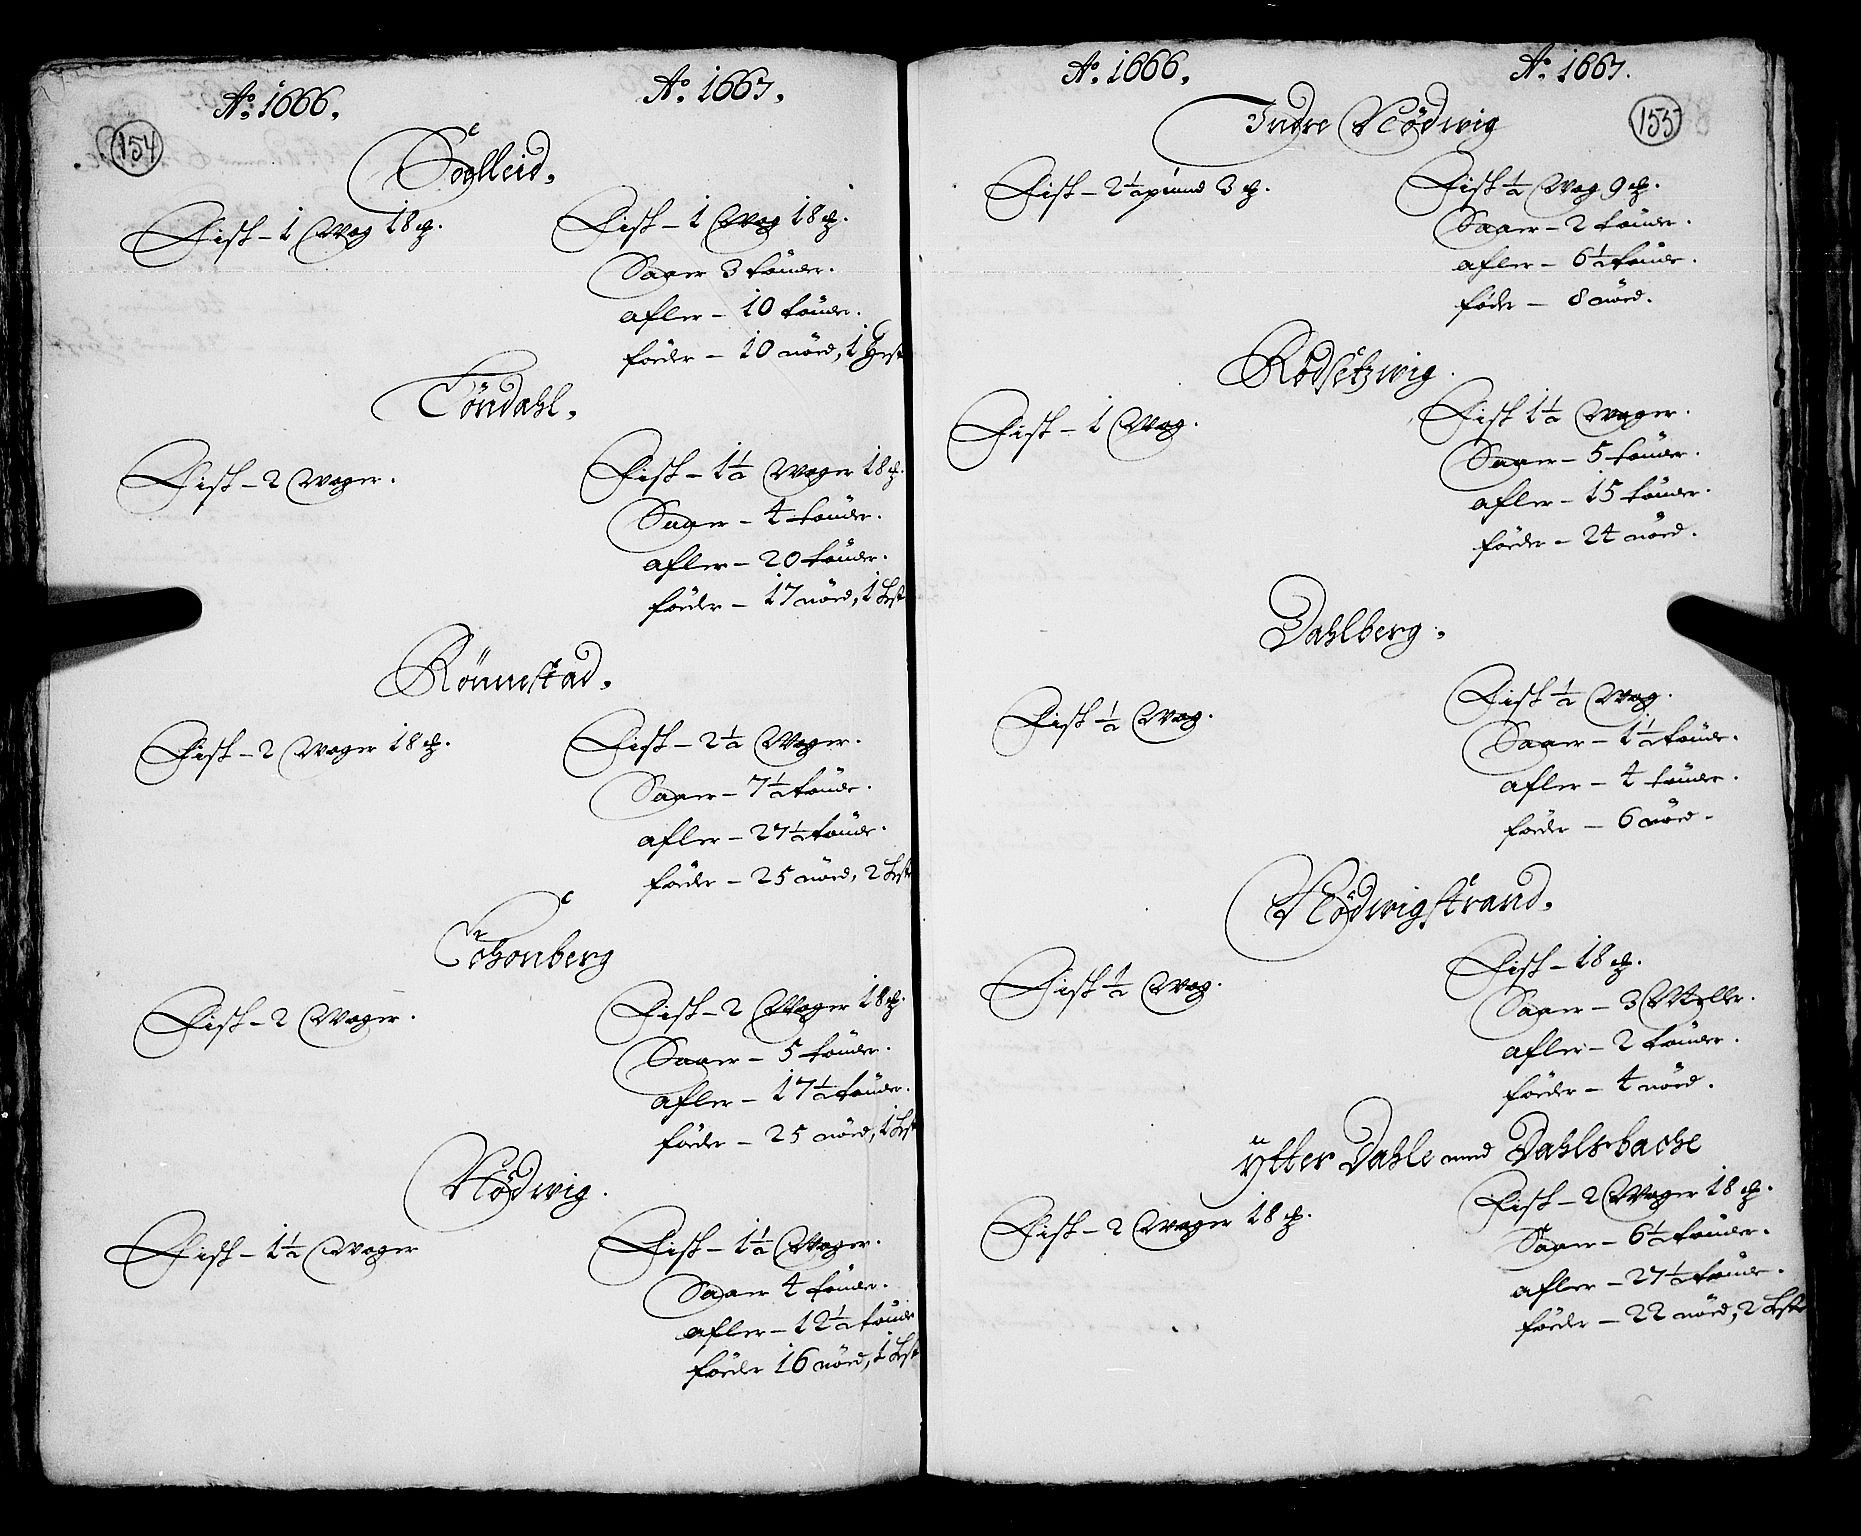 154
Ao. 1666. Ao. 1667.
Solleid.
Fisk - 1 Wog 18 ℔. Fisk - 1 Wog 18 ℔.
Saaer 3 tønder.
afler - 10 tønder.
føder - 10 nød, 1 Hest
Tøndahl.
Fisk - 2 Woger. Fisk - 1½ Woger 18 ℔.
Saaer - 4 tønder.
afler - 20 tønder.
føder - 17 nød, 1 Hest
Rønnestad.
Fisk - 2 Woger 18 ℔. Fisk - 2½ Woger.
Saaer - 7½ tønde.
afler - 27½ tønde.
føder - 25 nød, 2 Hest
Fisk - 2 Woger. Fisk - 2 Woger 18 ℔.
Saaer - 5 tønder.
afler - 17½ tønder.
føder - 25 nød, 1 Hest
Nødwig.
Fisk - 1½ Woger Fisk - 1½ Woger.
Saaer 4 tønder.
afler - 12½ tønde
føder 16 nød, 1 Hest
153
Ao. 1666. Ao. 1667.
Indre Nødwig
Fisk - 2½ pund 3 ℔. Fisk ½ Wog 9 ℔.
Saaer - 2 tønder.
afler - 6½ tønde.
føder - 8 nød.
Rødsetzwig.
Fisk - 1 Wog. Fisk 1½ Woger.
Saaer - 5 tønder.
afler - 15 tønder.
føder - 24 nød.
Dahlberg.
Fisk ½ Wog. Fisk ½ Wog.
Saaer - 1½ tønde.
afler - 4 tønder.
føder - 6 nød.
Nødwigstrand.
Fisk ½ Wog. Fisk - 18 ℔.
Saaer - 3 Meller.
afler - 2 tønder.
føder - 4 nød.
ÿtter Dahle med Dahlsbache
Fisk - 2 Woger 18 ℔. Fisk - 2 Woger 18 ℔.
Saaer - 6½ tønder.
afler - 27½ tønde.
føder - 22 nød, 2 Heste